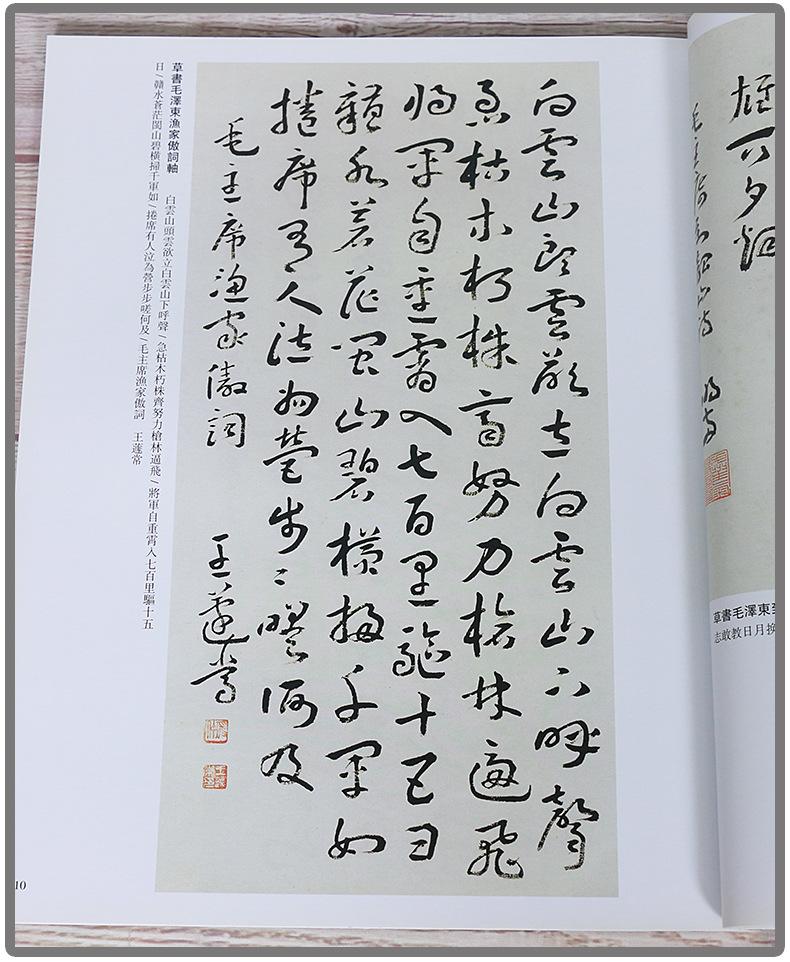 白雲山頭雲欲立白雲山下呼聲
急枯木朽株齊努力槍林逼飛
將軍自重霄入七百里驅十五日
贛水蒼茫閩山碧橫掃千軍如
捲席有人泣為營步〻嗟何及
毛主席漁家傲詞 王蘧常
草書毛澤東漁家傲詞軸 白雲山頭雲欲立白雲山下呼聲/急枯木朽株齊努力槍林逼飛/將軍自重霄入七百里驅十五
日/贛水蒼茫閩山碧橫掃千軍如/捲席有人泣為營步步嗟何及/毛主席漁家傲詞 王蘧常
10
草書毛澤東
志敢教日月換